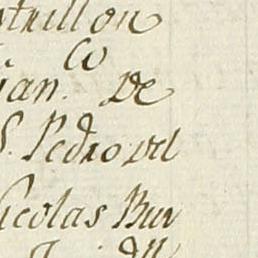 ntrillon
Co
ian. De
S. Pedro del
Nicolas Bur